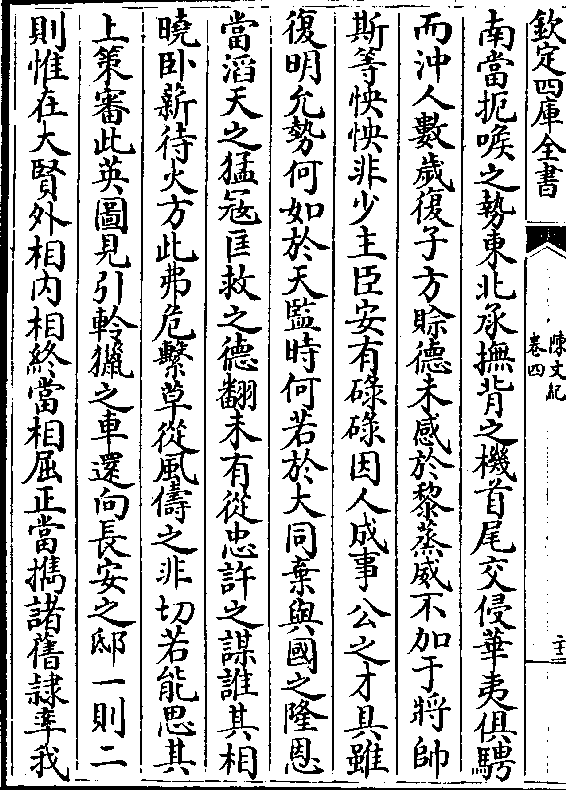 欽定四庫全書
陳文紀
卷四
二十二
南當扼喉之勢東北承撫背之機首尾交侵華夷俱騁
而沖人數歲復子方賒德未感於黎蒸威不加于將帥
斯等怏怏非少主臣安有碌碌因人成事公之才具雖
復明允勢何如於天監時何若於大同棄與國之隆恩
當滔天之猛冦匡救之德翻未有從忠許之謀誰其相
曉卧薪待火方此弗危繫草從風儔之非切若能思其
上策審此英圖見引軨獵之車還向長安之邸一則二
則惟在大賢外相内相終當相屈正當擕諸舊隷率我